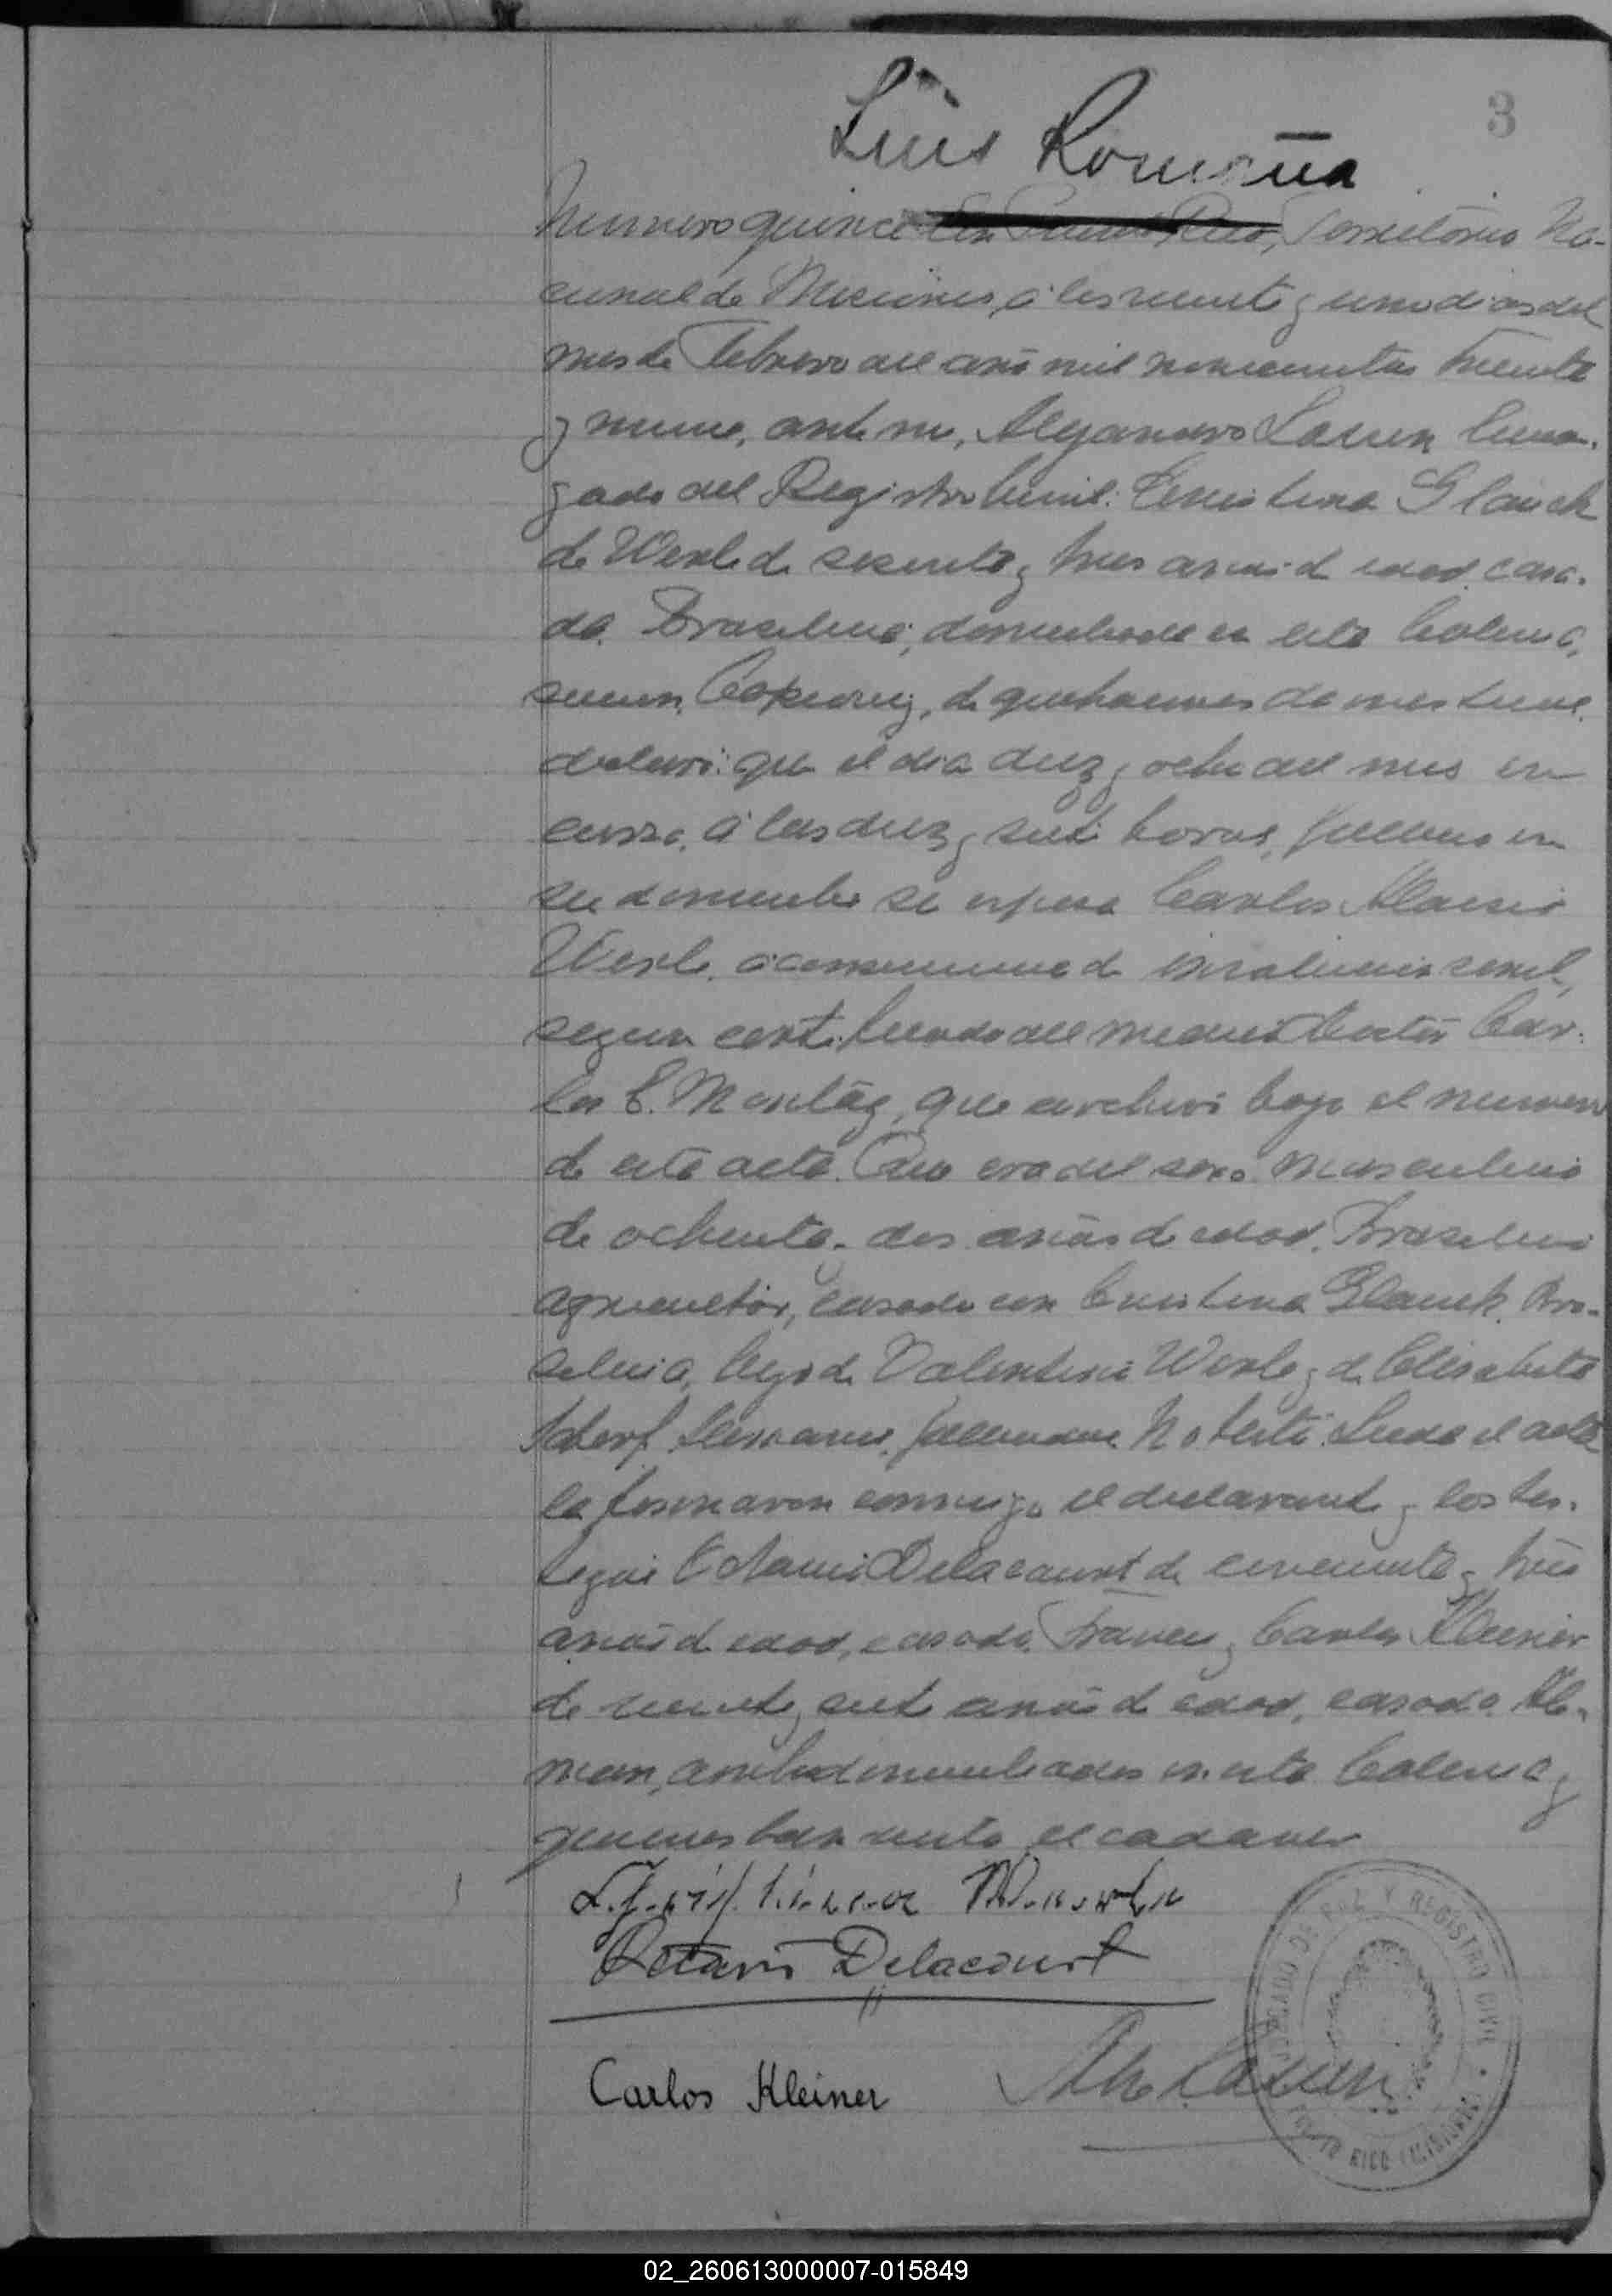 3
Luis Romaña
Numero quince En Puerto Rico, Territorio Na-
cional de Misiones, á los veinte y uno dias del
mes de Febrero del año mil novecientos treinta
y nueve, ante mi, Alejandro Encar-
gado del Registro Civil: Cristina Glauck
de Werle de sesenta y tres años de edad, casa-
da, Brasilera, domiciliada en esta Colonia,
seccion Capiovy, de quehaceres domesticos
declaró: que el dia diez y ocho del mes en
curso, á las diez y siete horas, fallecio en
su domicilio su esposo Carlos
Werle, a consecuencia de senil,
segun certificado del medico Doctor Car-
los E. que archivo bajo el numero
de esta acta. Que era del sexo masculino
de ochenta y dos años de edad, Brasilero
agricultor, casado con Cristina Glauck, Bra-
silera, hijo de Valentin Werle y de Elisabeta
fallecidos. No testó. Leida el acta
la firmaron conmigo, el declarante y los tes-
tigos Octavio Delacourt de cincuenta y tres
años de edad, casado, Frances y Carlos Kleiner
de veinte y siete años de edad, casado, Ale-
man, ambos domiciliados en esta Colonia y
quienes han visto el cadaver
Octavio Delacourt
Carlos Kleiner
JUZGADO DE PAZ Y REGISTRO CIVIL
PUERTO RICO (MISIONES)
02_260613000007-015849